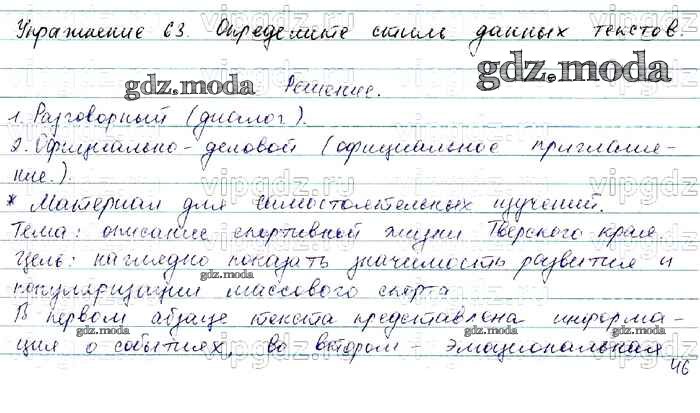 Упражнение 63. Определите стиль данных текстов.
gdz.moda
gdz.moda Решение.
1. Разговорный (диалог).
2. Официально-деловой (официальное приглаше-
ние.).
vipgdz.ru
* Материал для самостоятельных изучений.
Тема: описание спортивной жизни Тверского края
gdz.moda
Цель: наглядно показать значимость развития и
gdz.moda
популяризации массового спорта
В первом абзаце текста представлена информа-
gdz.moda gdz.moda
ция о событиях, во втором - эмоциональная
46